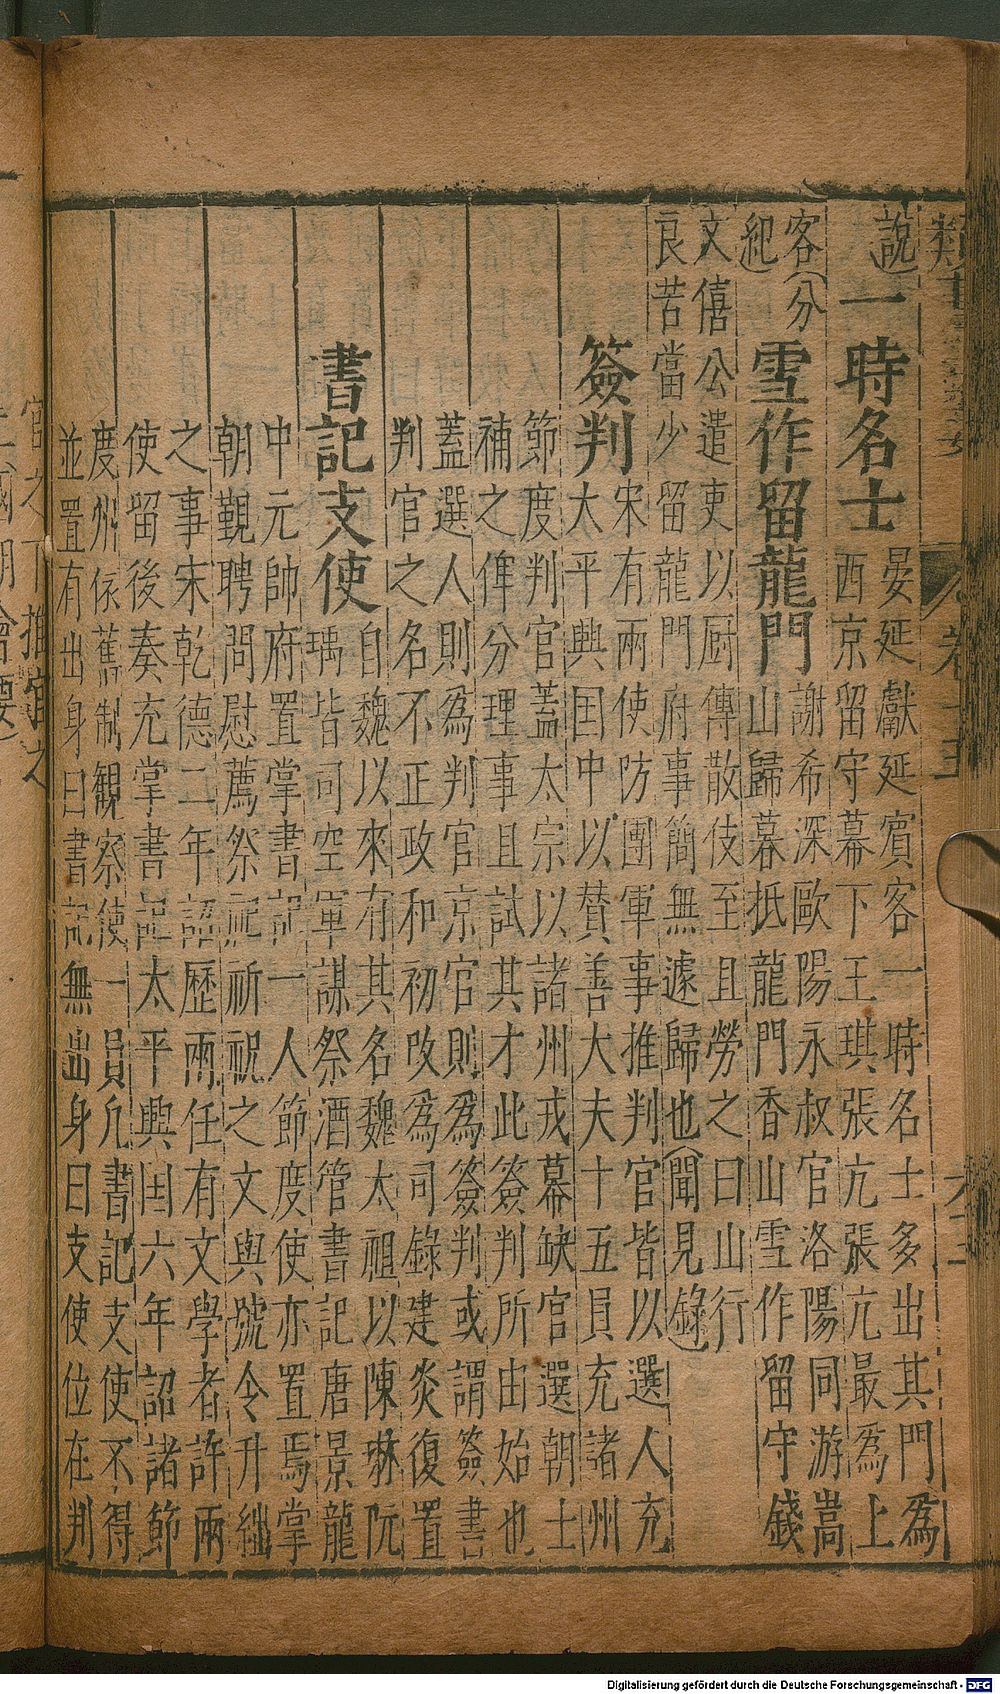 說
一時名士
晏延獻延賓客一時名士多出其門爲
西京留守幕下王琪張亢張亢最爲上
客(分
紀)
雪作留龍門
謝希深歐陽永叔官洛陽同游嵩
山歸暮抵龍門香山雪作留守錢
文僖公遣吏以厨傳散伎至且勞之曰山行
良苦當少留龍門府事簡無遽歸也(聞見錄)
簽判
宋有兩使防團軍事推判官皆以選人充
太平興囯中以贊善大夫十五員充諸州
節度判官蓋太宗以諸州戎幕缺官選朝士
補之俾分理事且試其才此簽判所由始也
蓋選人則爲判官京官則爲簽判或謂簽書
判官之名不正政和初改爲司錄建炎復置
書記支使
自魏以來有其名魏太祖以陳琳阮
瑀皆司空軍謀祭酒管書記唐景龍
中元帥府置掌書記一人節度使亦置焉掌
朝覲聘問慰薦祭祀祈祝之文與號令升絀
之事宋乾德二年詔歷兩任有文學者許兩
使留後奏充掌書記太平興囯六年詔諸節
度州依舊制觀察使一員凡書記支使不得
並置有出身曰書記無出身曰支使位在判
Digitalisierung gefördert durch die Deutsche Forschungsgemeinschaft - DFG